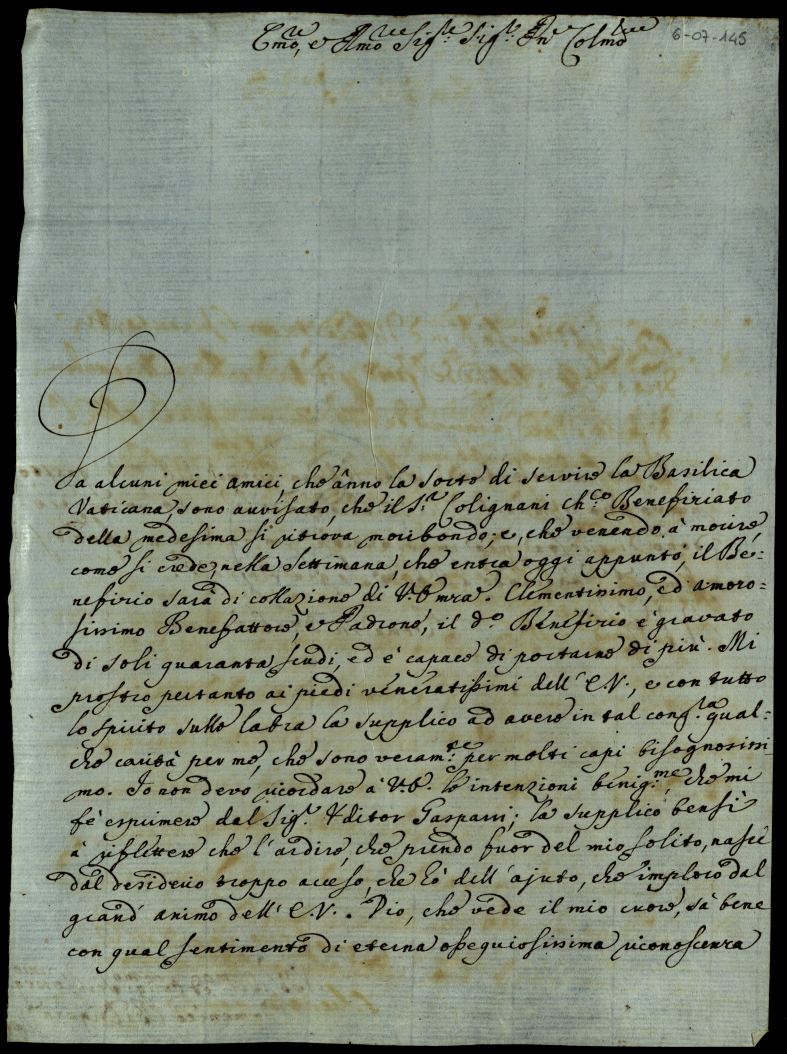 Emo, e Rmo Sigre Sigr Pne Colmo
6-07-145
Da alcuni miei amici, che ânno la sorte di servire la Basilica
Vaticana, sono avvisato, che il Sr Colignani chco Benefiziato
della medesima si ritrova moribondo; e, che venendo à morire,
come si crede, nella Settimana, che entra oggi appunto, il Be=
nefizio sarà di collazione di V. Emza. Clementissimo, ed amoro=
sissimo Benefattore, e Padrone, il do Benefizio è gravato
di soli quaranta scudi, ed è capace di portarne di più. Mi
prostro pertanto ai piedi veneratissimi dell' E.V., e con tutto
lo spirito sulle labra la supplico ad avere in tal congra qual=
che carità per me, che sono veramte per molti capi bisognosissi
mo. Io non devo ricordare à V.E. le intenzioni benigme, che mi
fè esprimere dal Sigr Uditor Gasparri; la supplico bensì
à riflettere che l'ardire, che prendo fuor del mio solito, nasce
dal desiderio troppo acceso, che hò dell' ajuto, che imploro dal
grand' animo dell' E.V.. Dio, che vede il mio cuore, sà bene
con qual sentimento di eterna ossequiosissima riconoscenza